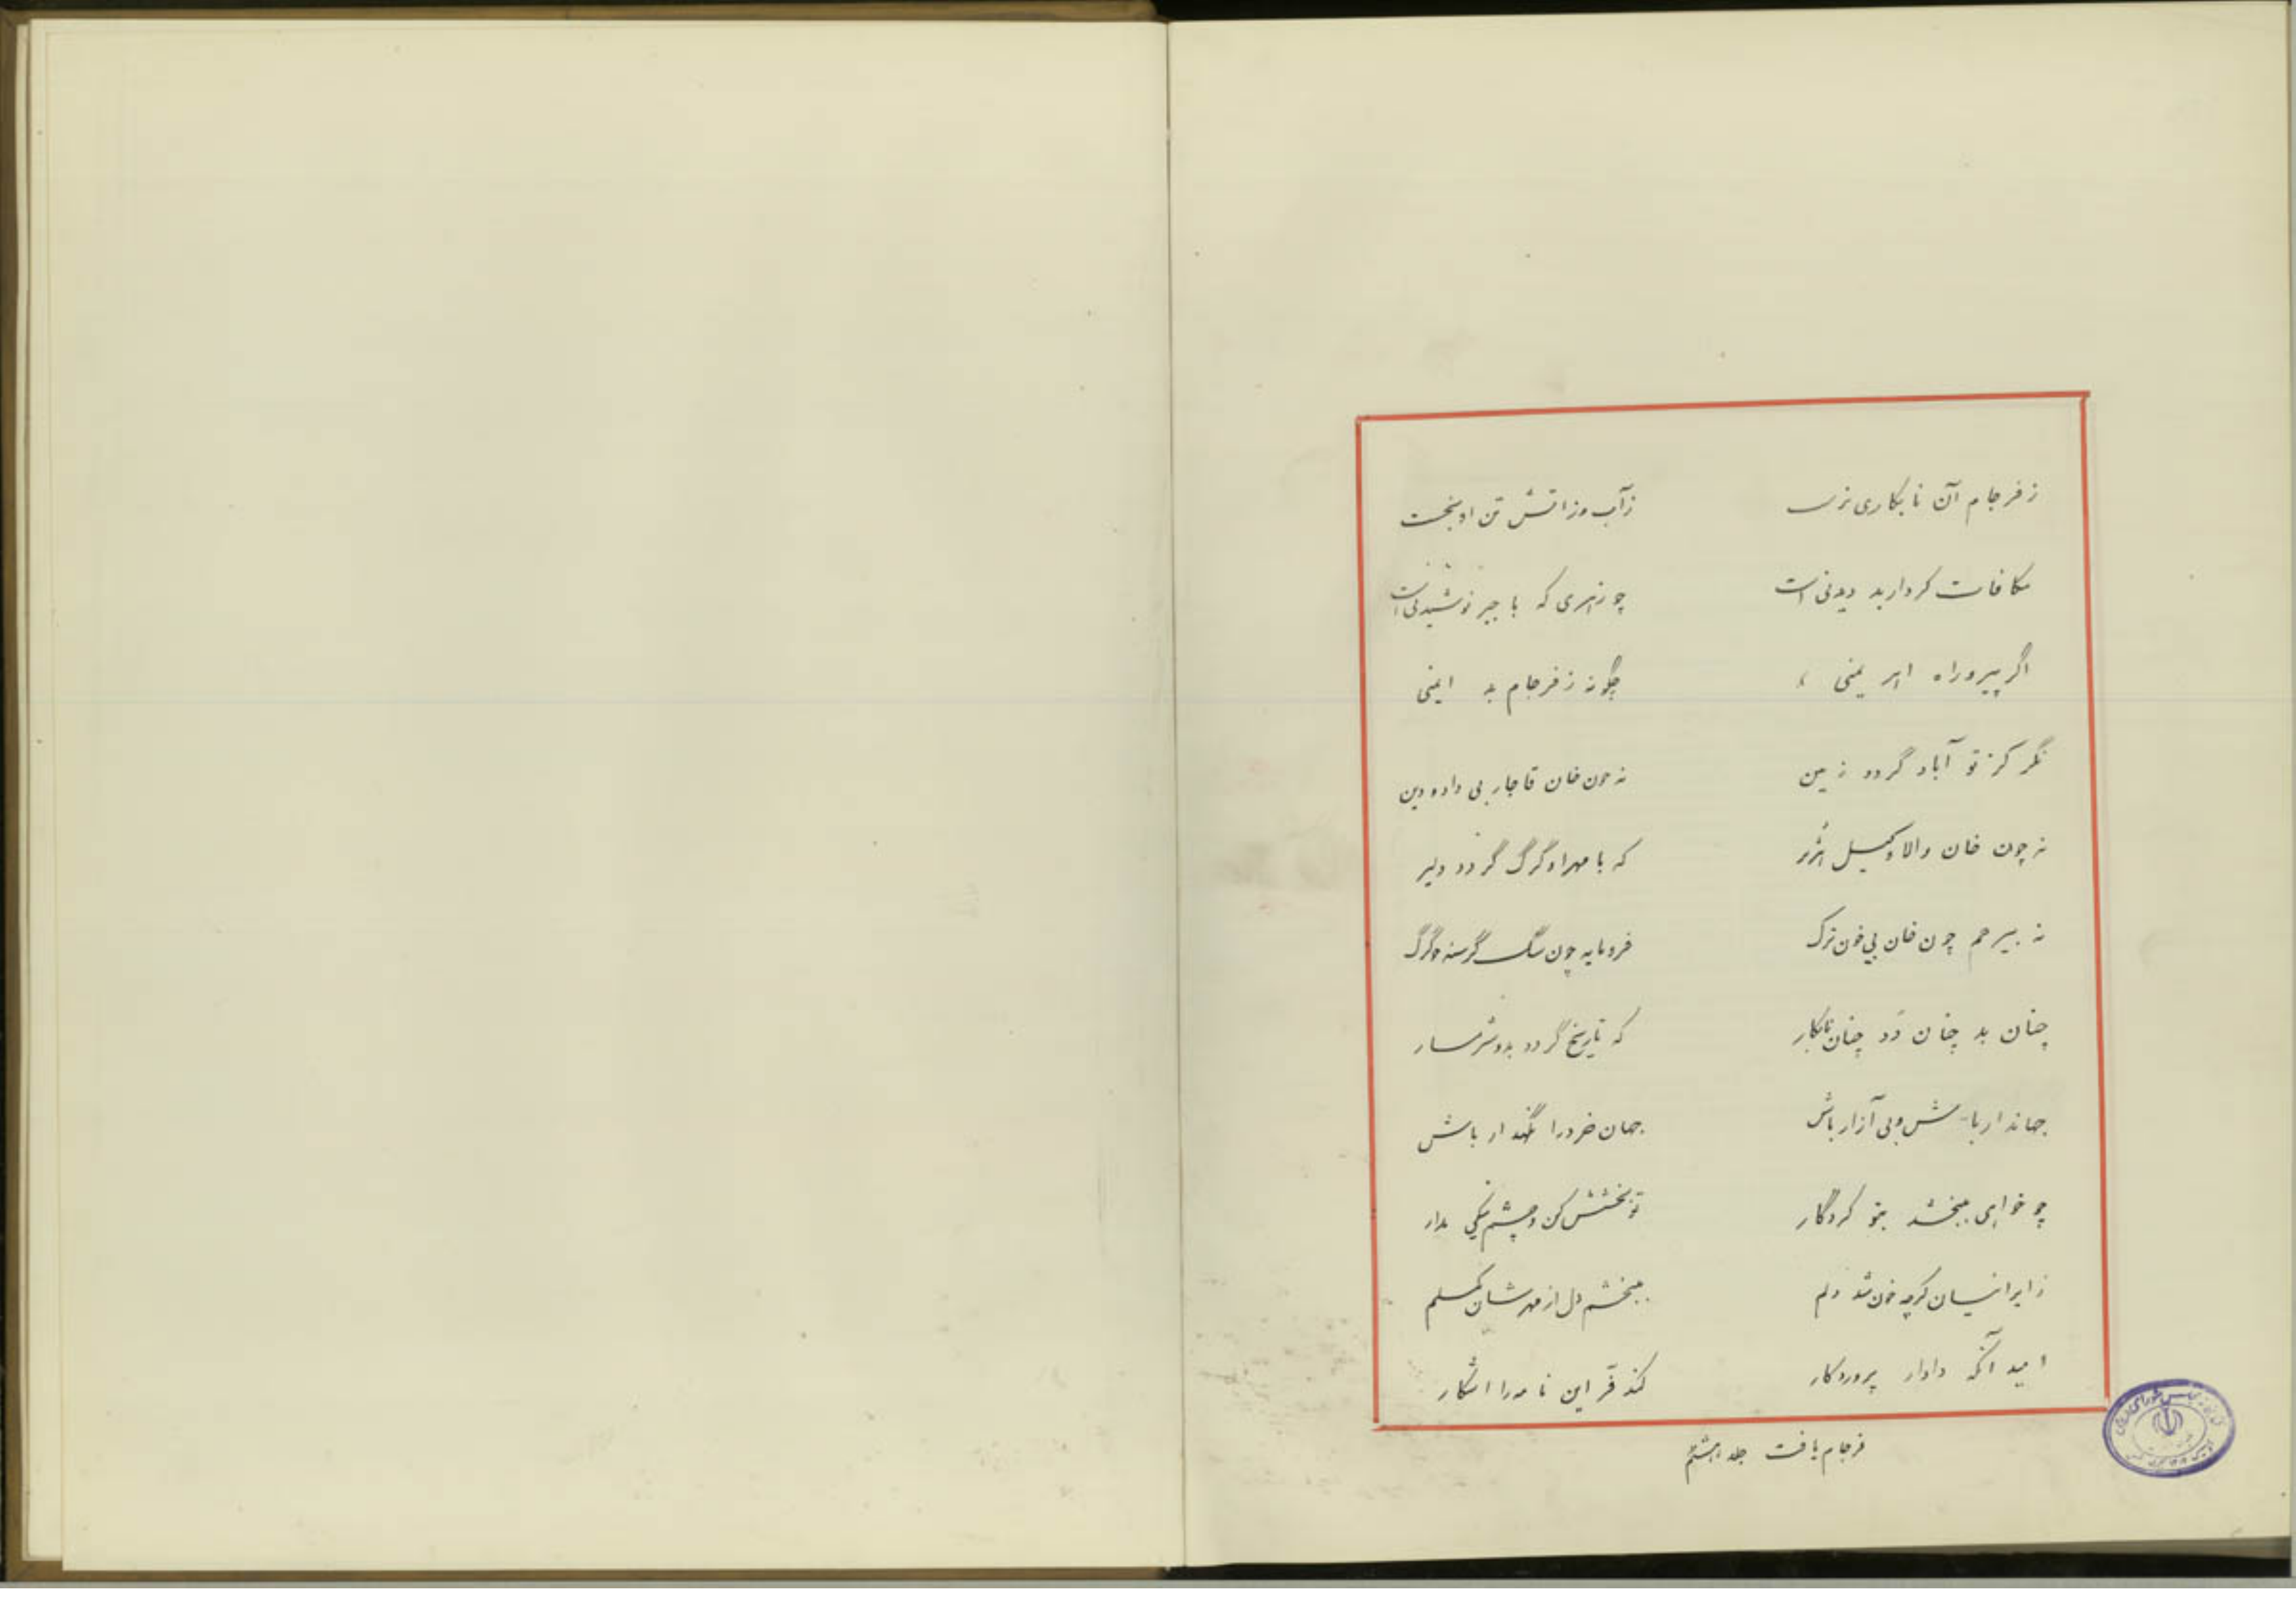 ز فرجام آن نابکاری نرست زآب و ز اتش تن او بخست
مکافات کردار بد دیدنی است چو زهری که با جبر نوشیدنی است
اگر پیرو راه اهریمنی چگونه ز فرجام بد ایمنی
نگر کز تو آباد گردد زمین نه چون خان قاجار بی داد و دین
نه چون خان والا وکیل هژبر که با مهر او گرگ گردد دلیر
نه بیرحم چون خان بی خون ترک فرومایه چون سگ گرسنه و گرگ
چنان بد چنان دَد چنان نابکار که تاریخ گردد بدو شرمسار
جهاندار باش و بی آزار باش جهان خرد را نگهدار باش
چو خواهی ببخشد بتو کردگار تو بخشش کن و چشم نیکی مدار
ز ایرانیان گرچه خون شد دلم ببخشم دل از مهرشان نگسلم
امید آنکه دادار پروردگار کند فَرّ این نامه را اشکار
فرجام یافت جلد هشتم